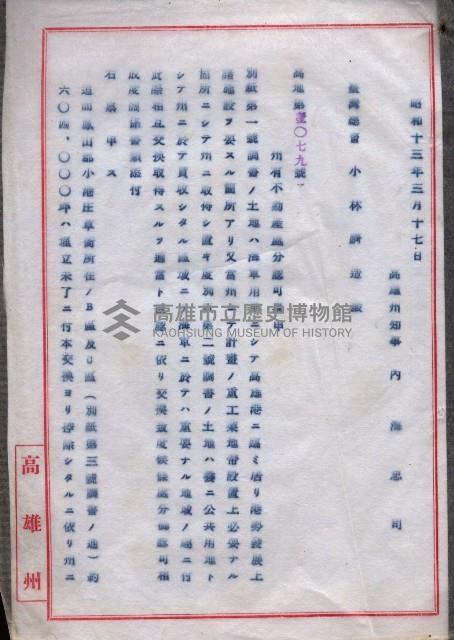 昭和十三年三月十七日
高雄州知事 内海忠司
臺灣總督 小林躋造殿
高地第壹〇七九號
州有不動產處分認可 申
別紙第一號調書ノ土地ハ海軍用 ニシテ高雄港ニ臨ミ居リ港勢發展上
諸施設ヲ要スル箇所アリ又當州ニテ計畫ノ重工業地帶設置上必要ナル
箇所ニシテ州ニ取得シ置キ度別 第二號調書ノ土地ハ曩ニ公共用地ト
シテ州ニ於テ買收シタル區域ニ 海軍ニ於テハ重要ナル地域ノ趣ニ付
此際相互交換取得スルヲ適當ト 認ニ依リ交換致度候條處分御認可相
成度關係書類添付
右稟申ス
追而鳳山郡小港庄草衙所在ノB區及C區(別紙第三號調書ノ通)約
六〇四、〇〇〇坪ハ埋立未了ニ付本交換ヨリ控除シタルニ依リ州ニ
高雄州
高雄市立歷史博物館
KAOHSIUNG MUSEUM OF HISTORY